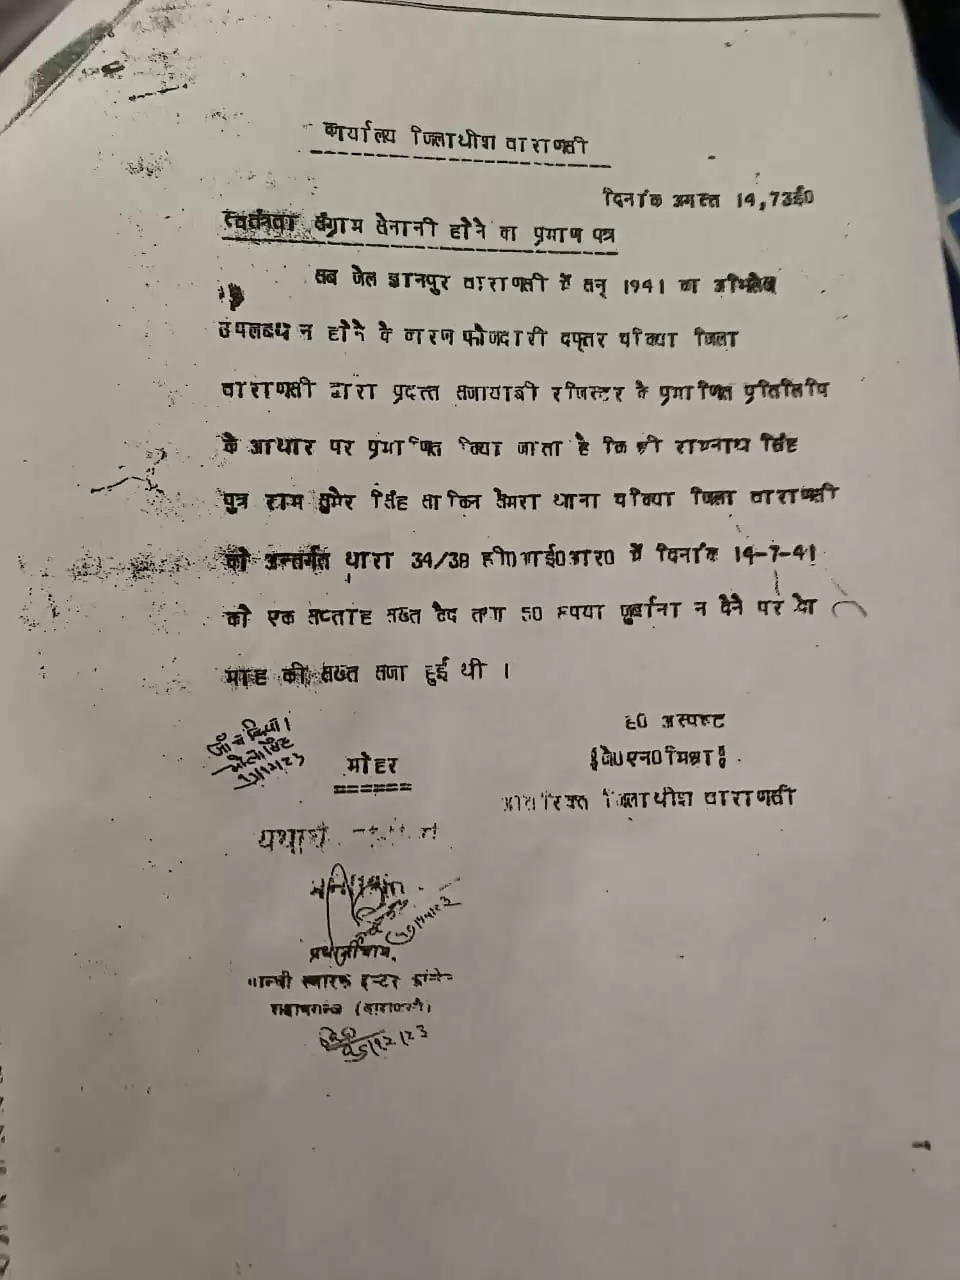 कार्यालय जिलाधीश वाराणसी
दिनांक अगस्त 14,73ई0
स्वतंत्रता संग्राम सेनानी होने का प्रमाण पत्र
सब जेल ज्ञानपुर वाराणसी में सन् 1941 का अभिलेख
उपलब्ध न होने के कारण फौजदारी दफ्तर चकिया जिला
वाराणसी द्वारा प्रदत्त सजायाबी रजिस्टर के प्रमाणित प्रतिलिपि
के आधार पर प्रमाणित किया जाता है कि श्री रामनाथ सिंह
पुत्र राम सुमेर सिंह साकिन सेमरा थाना चकिया जिला वाराणसी
को अन्तर्गत धारा 34/38 डी0आई0आर0 में दिनांक 14-7-41
को एक सप्ताह सख्त कैद तथा 50 रूपया जुर्बाना न देने पर दो
माह की सख्त सजा हुई थी ।
ह0 अस्पष्ट
जाँच किया।
मोहर
§जे0एन0मिश्रा§
जिलाधीश वाराणसी
प्रधानाचार्य,
गान्धी स्मारक इन्टर
(वाराणसी)